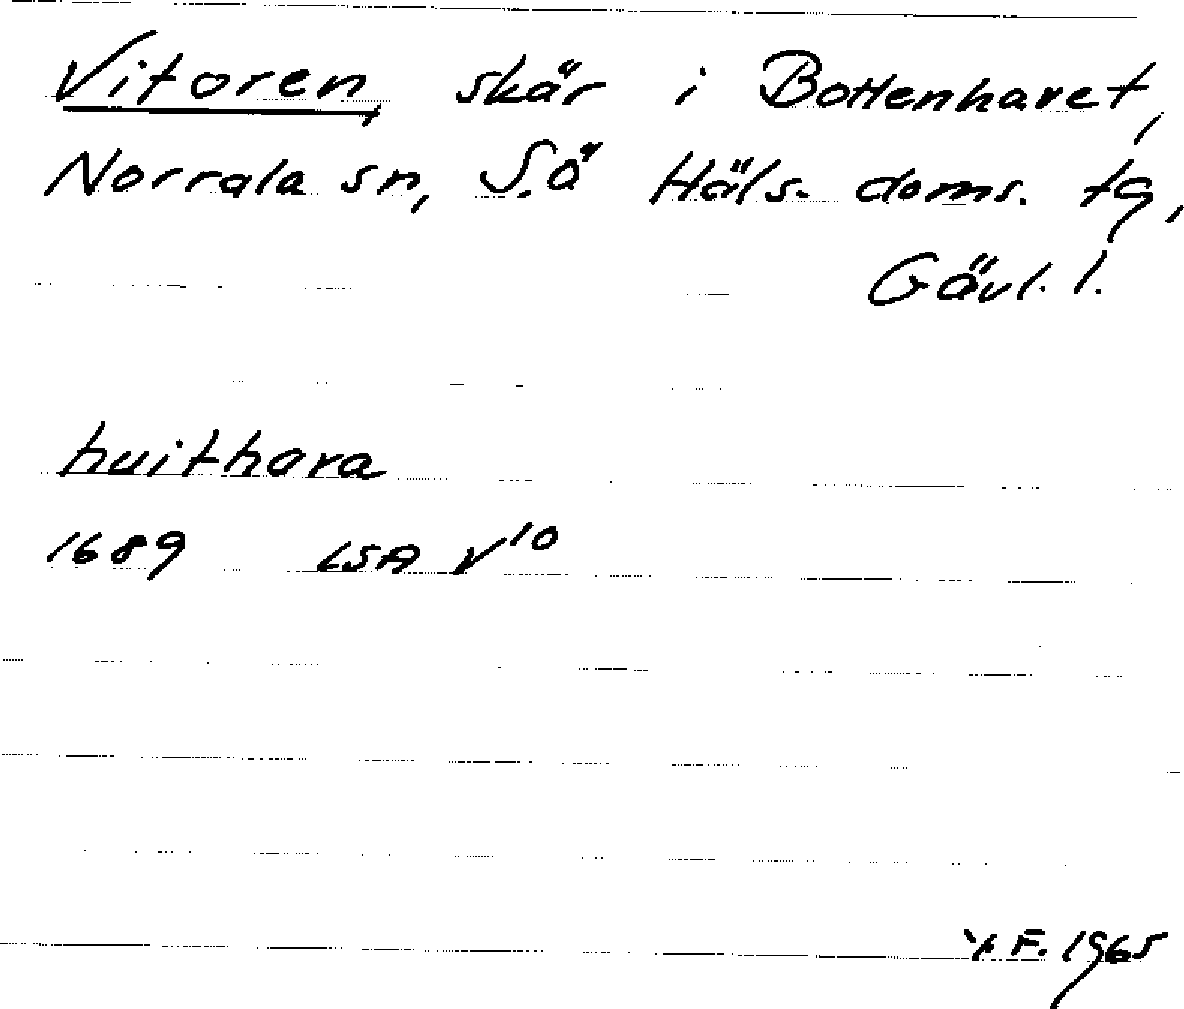 Vitoren, skär i Bottenhavet,
Norrala sn, S.ö Häls. doms. tg,
Gävl. l.
huithara
1689 LSA V10
Y.F. 1965